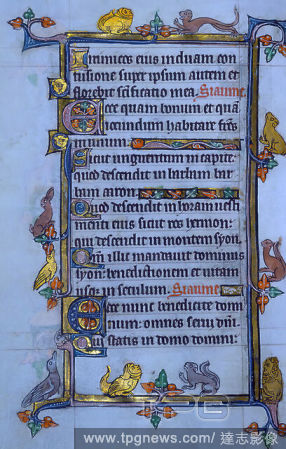 Inimicos eius induam con
fusione super ipsum autem et
florebit sanctificatio mea.
Ecce quam bonum et quā
iocundum habitare frēs
in unum
Sicut unguentum in capite:
quod descendit in barbam bar
bam aaron
Quod descendit in
menti eius sicut ros hermon:
qui descendit in montem syon.
illuc mandavit dominus
benedictionem et vitam
usque in seculum.
Ecce nunc benedicite domi
num: omnes servi dñi.
Qui statis in domo domini:
www.tpgnews.com/ 達志影像